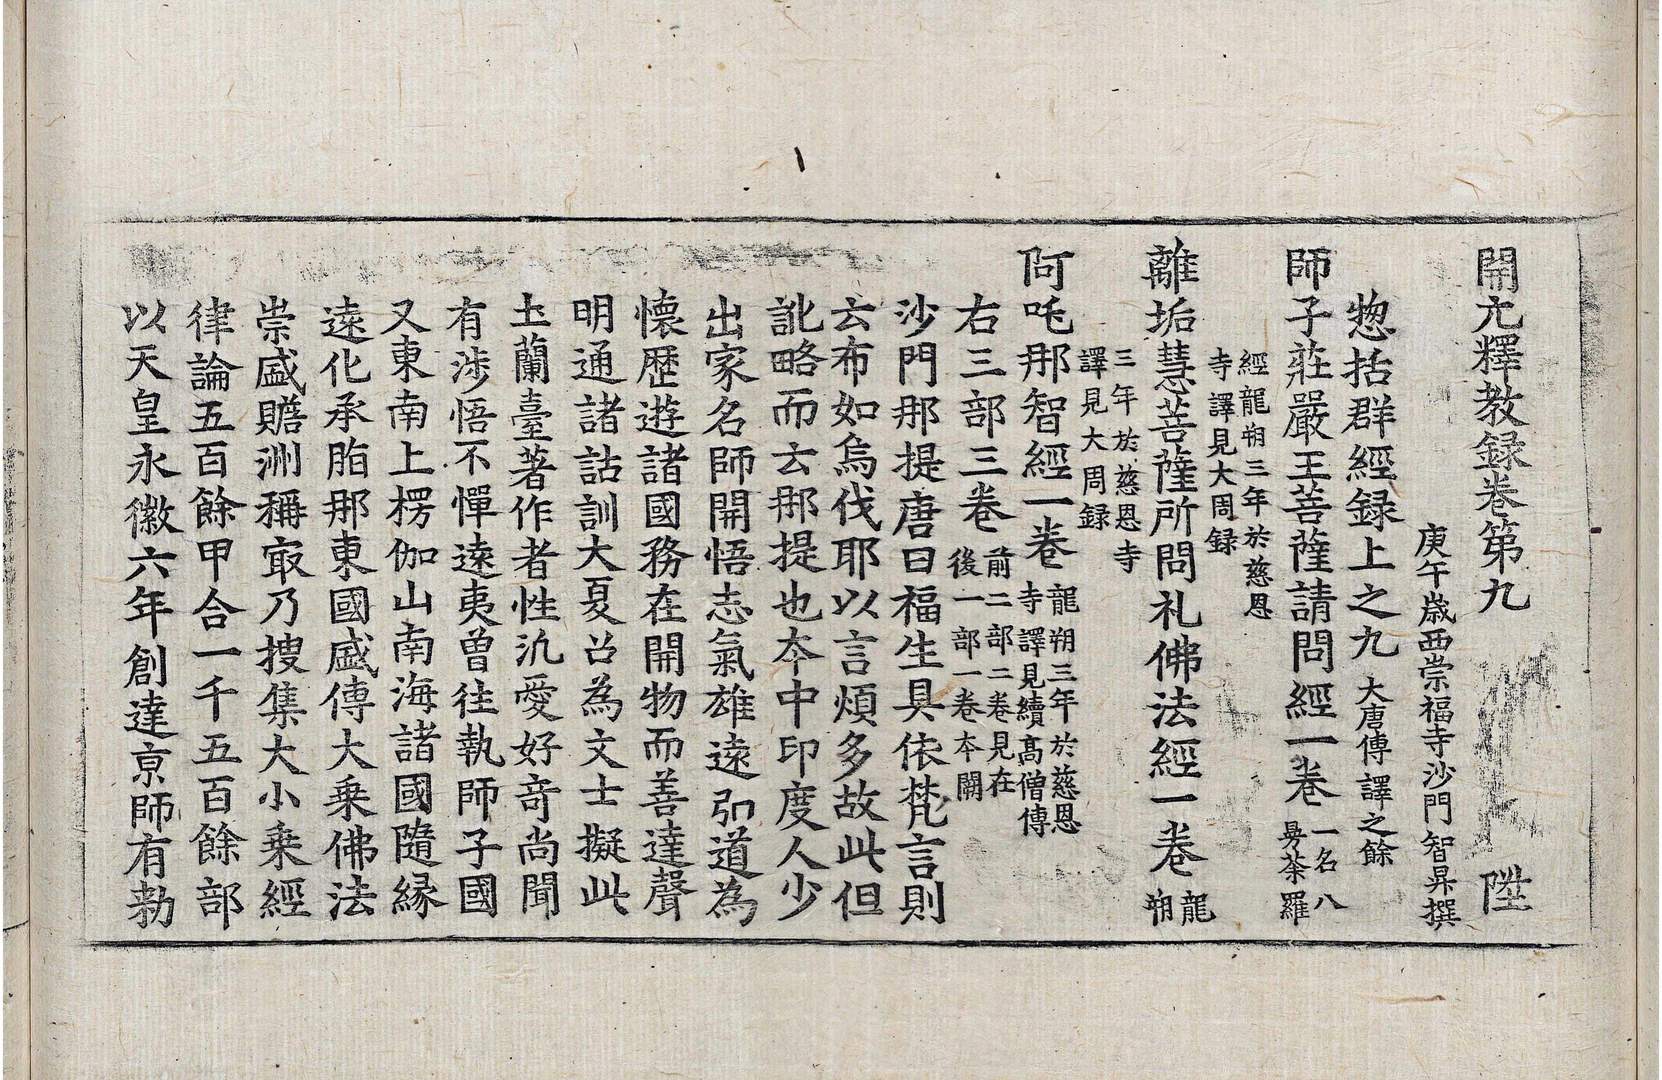 開元釋教録卷第九 陞
庚午歳西崇福寺沙門智昇撰
惣括群經録上之九 大唐傳譯之餘
師子莊嚴王菩薩請問經一卷 一名八
曼荼羅
經龍朔三年於慈恩
寺譯見大周録
離垢慧菩薩所問礼佛法經一卷 龍
朔
三年於慈恩寺
譯見大周録
阿吒那智經一卷 龍朔三年於慈恩
寺譯見續髙僧傳
右三部三卷 前二部二卷見在
後一部一卷夲闕
沙門那提唐曰福生具依梵言則
云布如烏伐耶以言煩多故此但
訛略而云那提也夲中印度人少
出家名師開悟志氣雄遠弘道為
懐歴遊諸國務在開物而善達聲
明通諸詁訓大夏召為文士擬此
土蘭臺著作者性汎愛好竒尚聞
有涉悟不憚遠夷曽往執師子國
又東南上楞伽山南海諸國隨縁
逺化承脂那東國盛傳大乗佛法
崇盛贍洲稱㝡乃捜集大小乗經
律論五百餘甲合一千五百餘部
以天皇永徽六年創達京師有勅